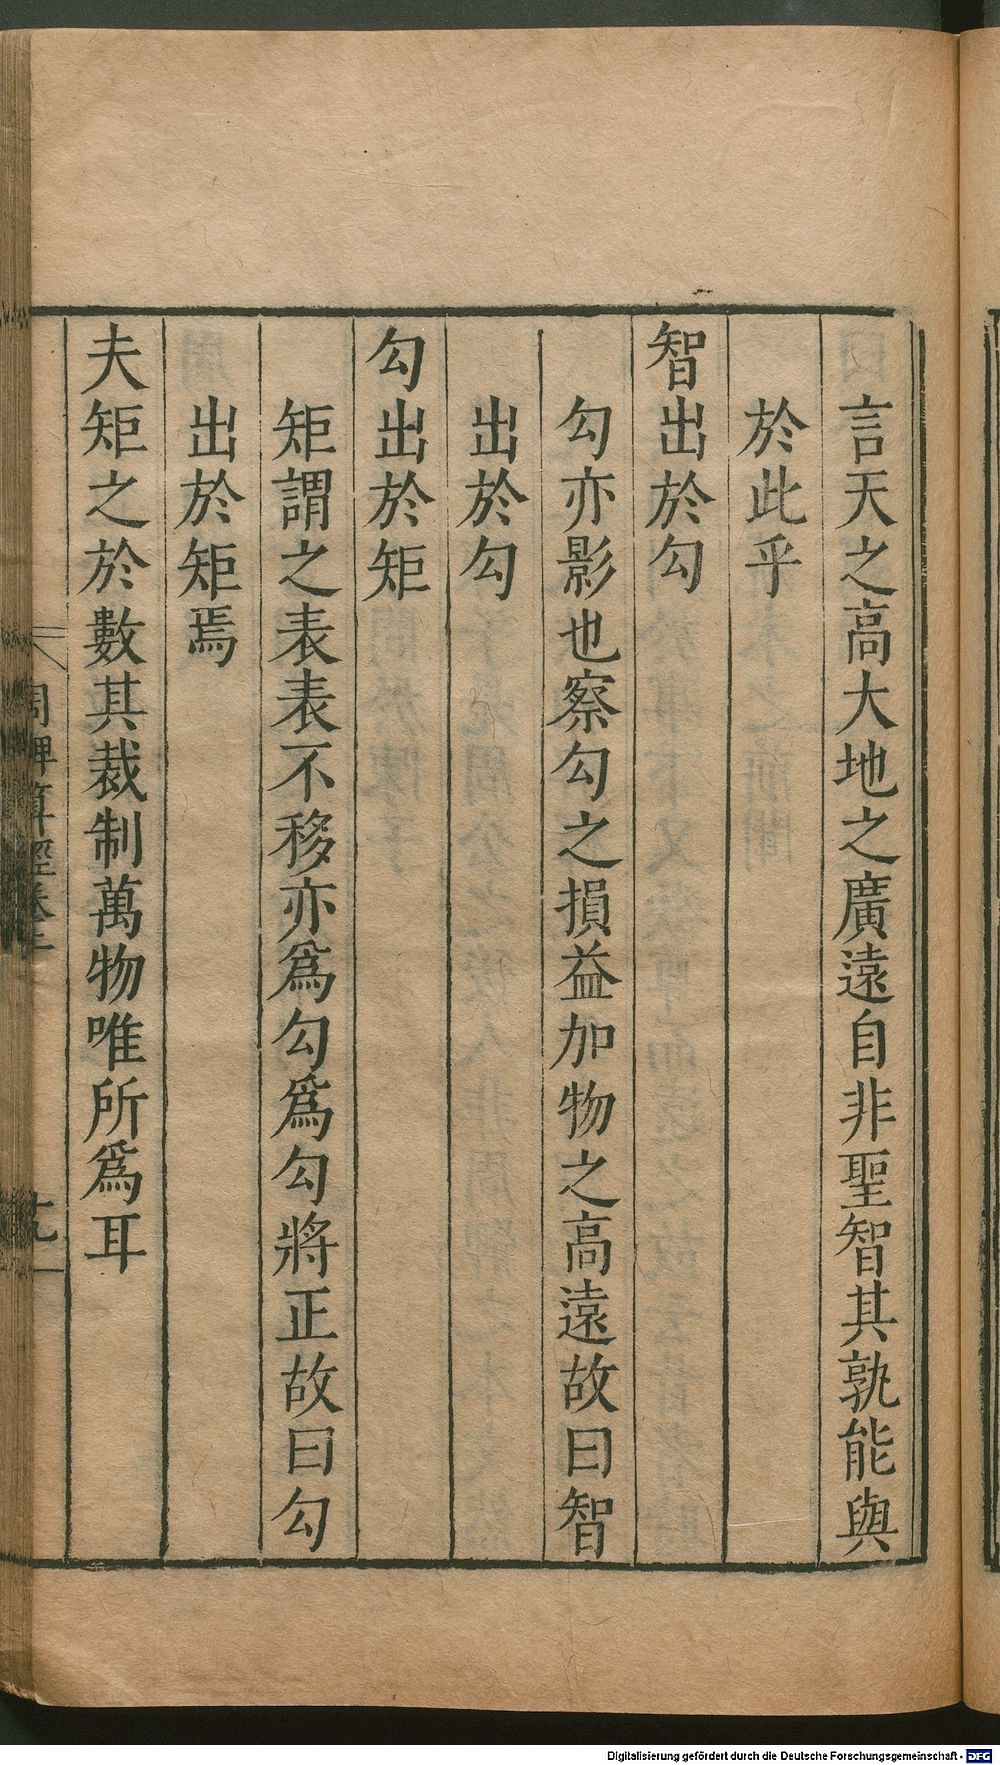 言天之高大地之廣遠自非聖智其孰能與
於此乎
智出於勾
勾亦影也察勾之損益加物之高遠故曰智
出於勾
勾出於矩
矩謂之表表不移亦爲勾爲勾將正故曰勾
出於矩焉
夫矩之於數其裁制萬物唯所爲耳
周髀算經卷上
Digitalisierung gefördert durch die Deutsche Forschungsgemeinschaft - DFG